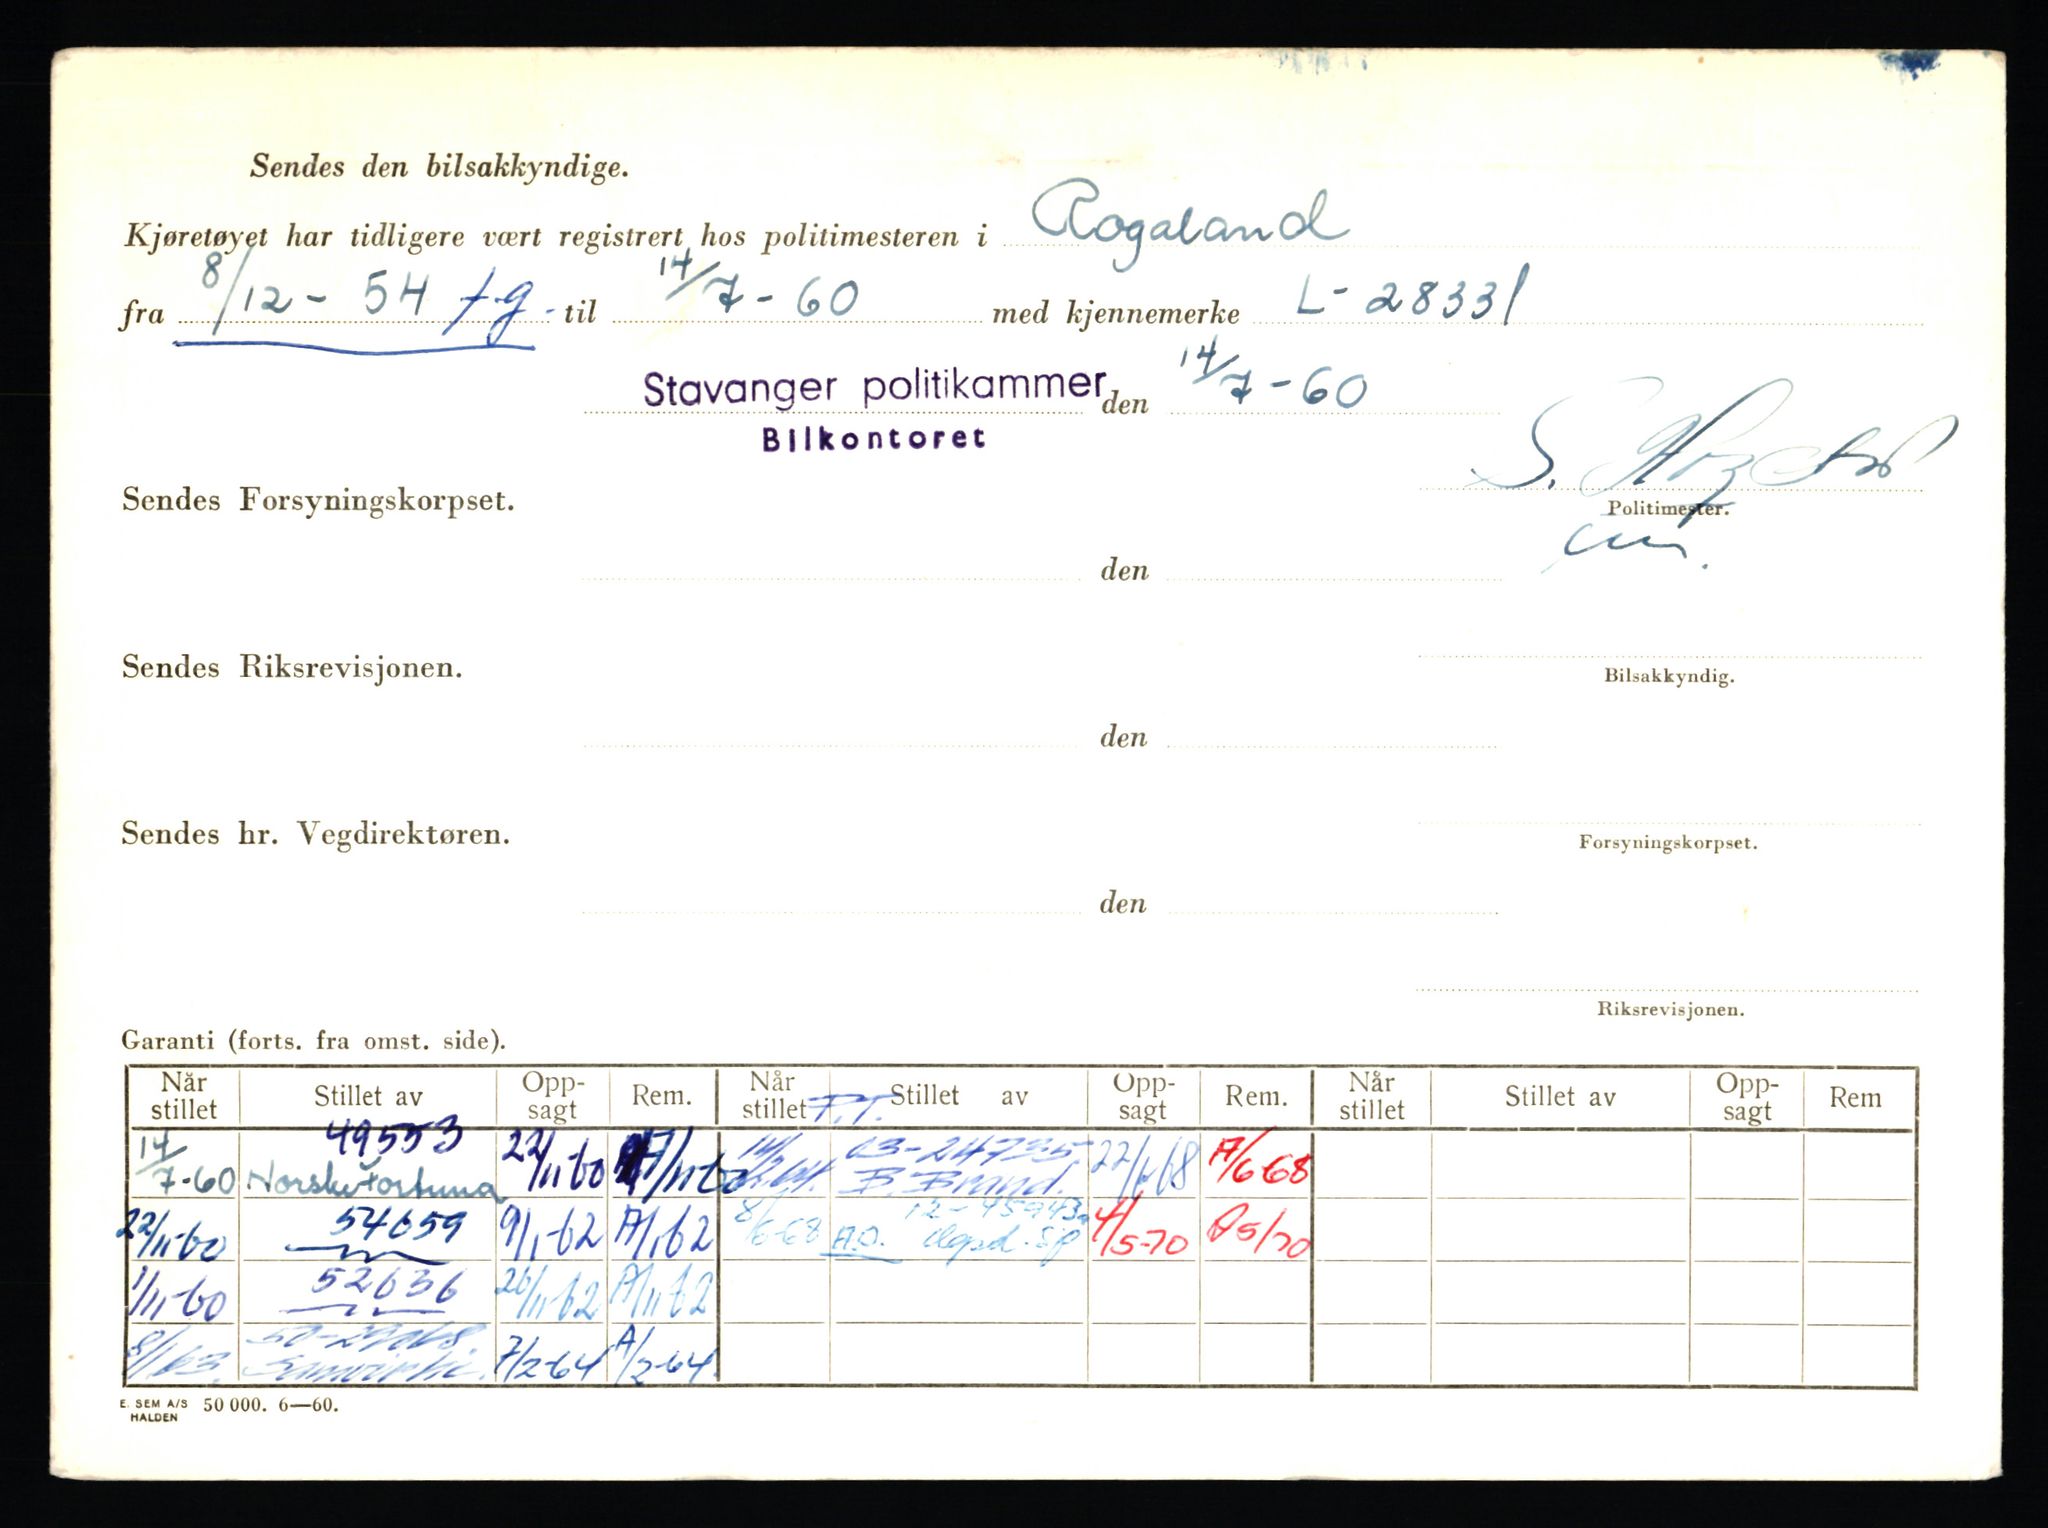 Sendes den bilsakkyndige.
Kjøretøyet har tidligere vært registrert hos politimesteren i Rogaland
fra 8/12 - 54 f.g. til 14/7 - 60 med kjennemerke L - 28331
Stavanger politikammer den 14/7 - 60
Bilkontoret
Sendes Forsyningskorpset.
Politimester.
den
Sendes Riksrevisjonen.
Bilsakkyndig.
den
Sendes hr. Vegdirektøren.
Forsyningskorpset.
den
Riksrevisjonen.
Garanti (forts. fra omst. side).
Når stillet Stillet av Opp-sagt Rem. Når stillet Stillet av Opp-sagt Rem. Når stillet Stillet av Opp-sagt Rem
14/7-60 49553 Norske Fortuna 22/11-60 7/11-60
22/11-60 54659 9/1-62 A/1-62
1/11-60 52636 26/11-62 A/11-62
8/1-63. 7/2-64 A/2-64.
F.T. 03-24735. B. Brand. 22/6-68 A/6-68
8/6-68 12-45943 A.O. 4/5-70 A5/70
E. SEM A/S HALDEN 50 000. 6—60.